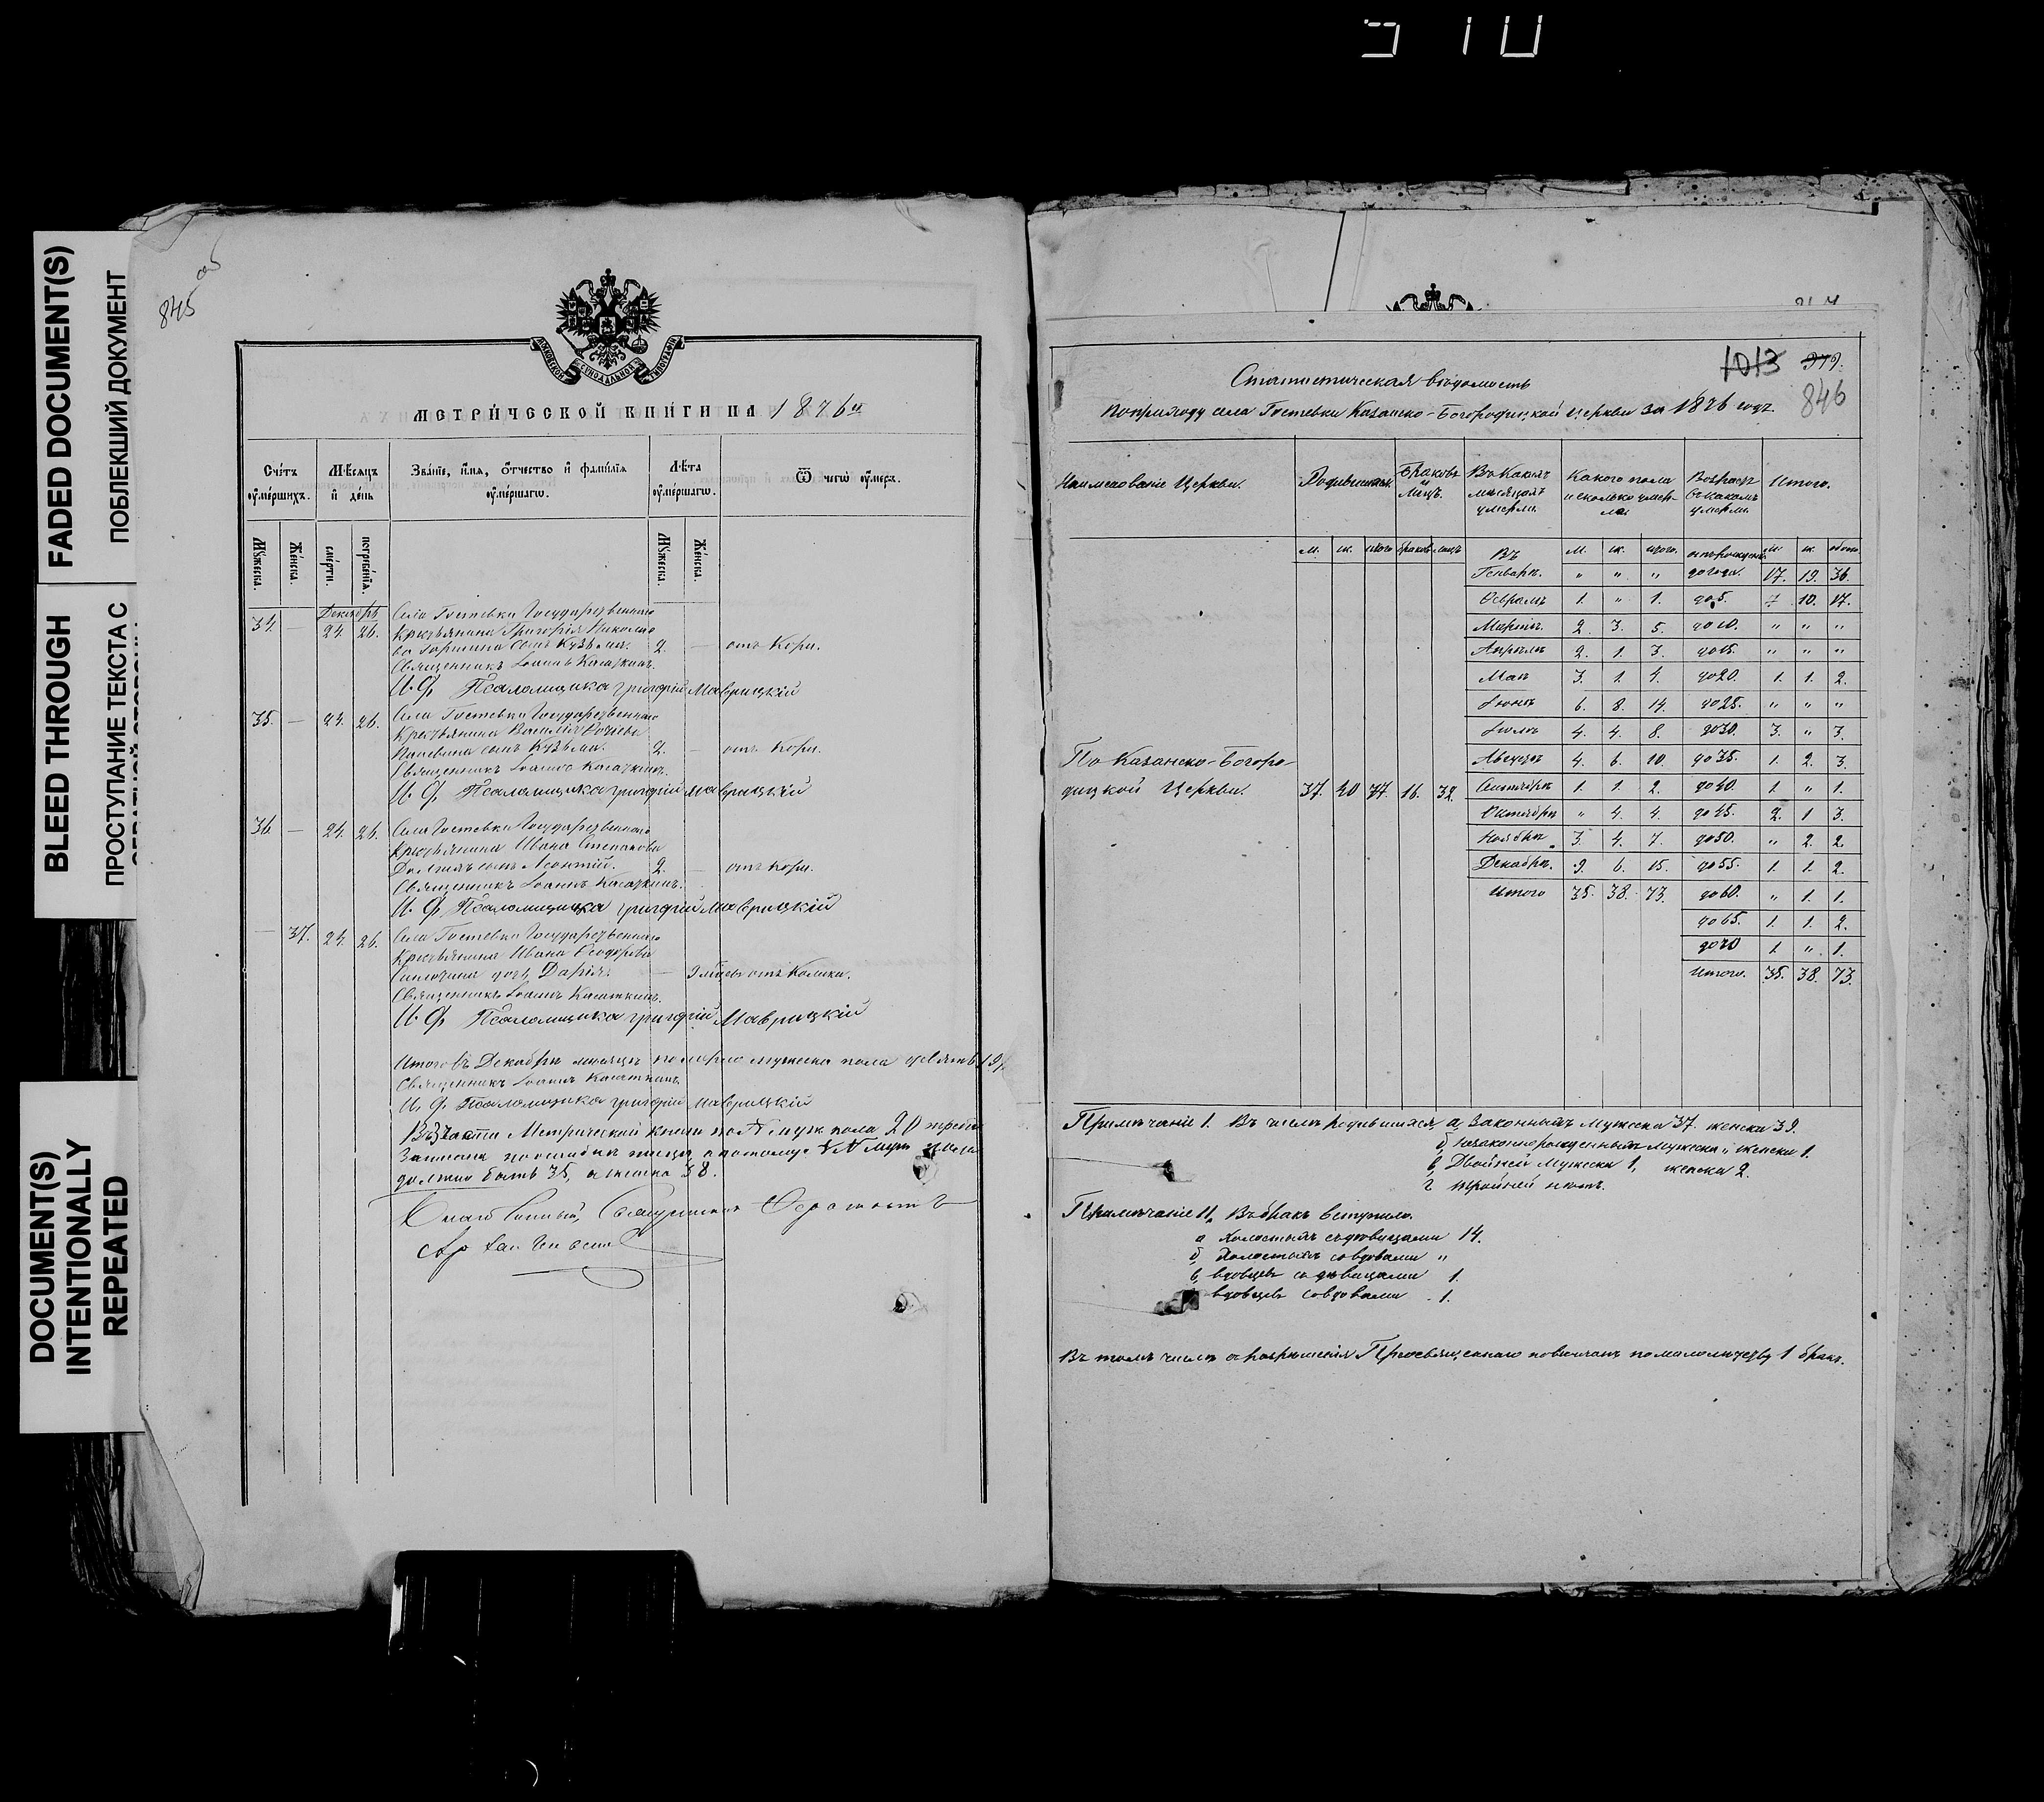 FADED DOCUMENT(S)
ПОБЛЕКШИЙ ДОКУМЕНТ
BLEED THROUGH
ПРОСТУПАНИЕ ТЕКСТА С
DOCUMENT(S)
INTENTIONALLY
REPEATED
845 об
МОСКОВСКОЙ СѴНОДАЛЬНОЙ ТИПОГРАФІИ
МЕТРИ́ЧЕСКОЙ КНИ́ГИ НА 1876 й
Сче́тъ ᲂу҆ме́ршихъ.
Мѣ́сяцъ и҆ де́нь
Зва́нїе, и҆́мя, ѻ҆́тчество и҆ фамі́лїя ᲂу҆ме́ршагѡ.
Лѣ́та ᲂу҆ме́ршагѡ.
Ѿ чегѡ̀ ᲂу҆́меръ.
Мꙋ́жеска.
Же́нска.
сме́рти.
погребе́нїѧ.
Мꙋ́жеска.
Же́нска.
Декабрь
34. — 24. 26. Села Гостевки Государственнаго
крестьянина Григорія Николаева
сынъ Кузьма. 2. — отъ Кори.
Священникъ Іоаннъ Касаткинъ.
И. Ф. Псаломщика Григорій Маврицкій
35. — 24. 26. Села Гостевки Государственнаго
Крестьянина Василія
сынъ Кузьма. 2. — отъ Кори.
Священникъ Іоаннъ Касаткинъ.
И. Ф. Псаломщика Григорій Маврицкій
36. — 24. 26. Села Гостевки Государственнаго
Крестьянина Ивана Степанова
сынъ Леонтій. 2. — отъ Кори.
Священникъ Іоаннъ Касаткинъ.
И. Ф. Псаломщика Григорій Маврицкій
— 37. 24. 26. Села Гостевки Государственнаго
Крестьянина Ивана Ѳеодорова
дочь Дарія. — 9 мѣсяц отъ Колики.
Священникъ Іоаннъ Касаткинъ.
И. Ф. Псаломщика Григорій Маврицкій
Итого въ Декабрѣ мѣсяцѣ померло мужеска пола девять /9/.
Священникъ Іоаннъ Касаткинъ
И. Ф. Псаломщика Григорій Маврицкій
Въ 3 части Метрической книги по № муж пола 20
записанъ по ошибкѣ писца а потому № муж
должно быть 35, а женска 38.
1013 979.
846
Статистическая вѣдомость
По приходу села Гостевки Казанско-Богородицкой церкви за 1876 годъ.
Наименованіе Церкви.
Родившихся.
Браковъ и Лицъ.
Въ какомъ мѣсяцѣ умерли.
Какого пола и сколько умерло
Возрастъ въ какомъ умерли.
Итого.
м. ж. итого браковъ лицъ Въ м. ж. итого. отъ рожденія м. ж. обоего
Генварѣ. " " " до года. 17. 19. 36.
Февралѣ 1. " 1. до 5. 7 10. 17.
Мартѣ. 2. 3. 5. до 10. " " "
Апрѣлѣ 2. 1. 3. до 15. " " "
Маѣ 3. 1. 4. до 20. 1. 1. 2.
Іюнѣ 6. 8. 14. до 25. " " "
Іюлѣ 4. 4. 8. до 30. 3. " 3.
По Казанско-Богоро-
Августѣ 4. 6. 10. до 35. 1. 2. 3.
дицкой Церкви. 37. 40 77. 16. 32.
Сентябрѣ 1. 1. 2. до 40. 1. " 1.
Октябрѣ " 4. 4. до 45. 2. 1 3.
Ноябрѣ 3. 4. 7. до 50. " 2. 2.
Декабрѣ. 9. 6. 15. до 55. 1. 1. 2.
Итого 35. 38. 73. до 60. " 1. 1.
до 65. 1. 1. 2.
до 70 1. " 1.
Итого. 35. 38. 73.
Примѣчаніе 1. Въ числѣ родившихся, а, Законныхъ Мужеска 37. женска 39.
б, незаконнорожденныхъ мужеска " женска 1.
в, Двойней Мужеска 1, женска 2.
г тройней нѣтъ.
Примѣчаніе II, Въ бракъ вступило.
а холостыхъ съ дѣвицами 14.
б, холостыхъ со вдовами "
в, вдовцевъ съ дѣвицами 1.
вдовцевъ со вдовами 1.
Въ томъ числѣ съ разрѣшенія Преосвященнаго повѣнчанъ по малолѣтству 1 бракъ.